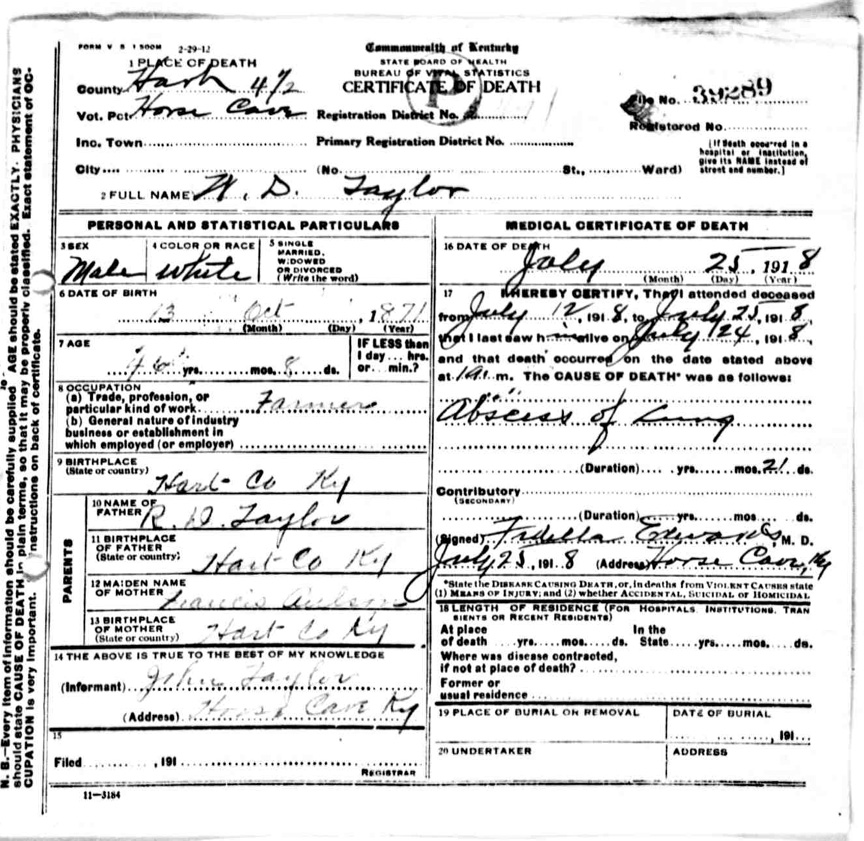 FORM V S 1 500M 2-29-12
Commonwealth of Kentucky
STATE BOARD OF HEALTH
BUREAU OF VITAL STATISTICS
CERTIFICATE OF DEATH
1 PLACE OF DEATH
County Hart 4 1/2
Vot. Pct. Horse Cave
Registration District No.
Inc. Town
Primary Registration District No.
City (No. St., Ward)
File No. 39289
Registered No.
[If death occurred in a
hospital or institution,
give its NAME instead of
street and number.]
2 FULL NAME W. D. Taylor
PERSONAL AND STATISTICAL PARTICULARS
3 SEX
Male
4 COLOR OR RACE
White
5 SINGLE
MARRIED,
WIDOWED
OR DIVORCED
(Write the word)
6 DATE OF BIRTH
13 Oct, 1871
(Month) (Day) (Year)
7 AGE
yrs. mos. 8 ds.
IF LESS than
1 day... hrs.
or... min.?
8 OCCUPATION
(a) Trade, profession, or
particular kind of work Farmer
(b) General nature of industry
business or establishment in
which employed (or employer)
9 BIRTHPLACE
(State or country)
Hart Co Ky
PARENTS
10 NAME OF
FATHER R. D. Taylor
11 BIRTHPLACE
OF FATHER
(State or country) Hart Co Ky
12 MAIDEN NAME
OF MOTHER Francis
13 BIRTHPLACE
OF MOTHER
(State or country) Hart Co Ky
14 THE ABOVE IS TRUE TO THE BEST OF MY KNOWLEDGE
(Informant) John Taylor
(Address) Horse Cave Ky
15
Filed, 191
REGISTRAR
11-3184
MEDICAL CERTIFICATE OF DEATH
16 DATE OF DEATH
July 25, 1918
(Month) (Day) (Year)
17 I HEREBY CERTIFY, That I attended deceased
from July 12, 1918, to July 25, 1918,
that I last saw him alive on July 24, 1918,
and that death occurred on the date stated above
at m. The CAUSE OF DEATH* was as follows:
Abscess of Lung
(Duration) yrs. mos. 21 ds.
Contributory
(SECONDARY)
(Duration) yrs. mos. ds.
(Signed) Fidella Edwards, M. D.
July 25, 1918 (Address) Horse Cave, Ky
*State the DISEASE CAUSING DEATH, or, in deaths from VIOLENT CAUSES state
(1) MEANS OF INJURY; and (2) whether ACCIDENTAL, SUICIDAL or HOMICIDAL
18 LENGTH OF RESIDENCE (FOR HOSPITALS, INSTITUTIONS, TRAN
SIENTS OR RECENT RESIDENTS)
At place
of death yrs. mos. ds.
In the
State yrs. mos. ds.
Where was disease contracted,
if not at place of death?
Former or
usual residence
19 PLACE OF BURIAL OR REMOVAL
DATE OF BURIAL
, 191
20 UNDERTAKER
ADDRESS
N. B.—Every item of information should be carefully supplied. AGE should be stated EXACTLY. PHYSICIANS
should state CAUSE OF DEATH in plain terms, so that it may be properly classified. Exact statement of OC-
CUPATION is very important. instructions on back of certificate.